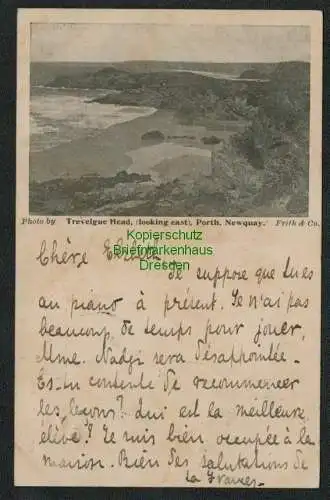 Photo by Trevelgue Head, (looking east), Porth, Newquay. Frith & Co.
Kopierschutz
Briefmarkenhaus
Dresden
Chère
Je suppose que tu es
au piano à présent. Je n'ai pas
beaucoup de temps pour jouer,
Mme. Nadgi sera désappointée –
Es-tu contente de recommencer
les leçons? Qui est la meilleure
élève? Je suis bien occupée à la
maison. Bien des salutations de
la